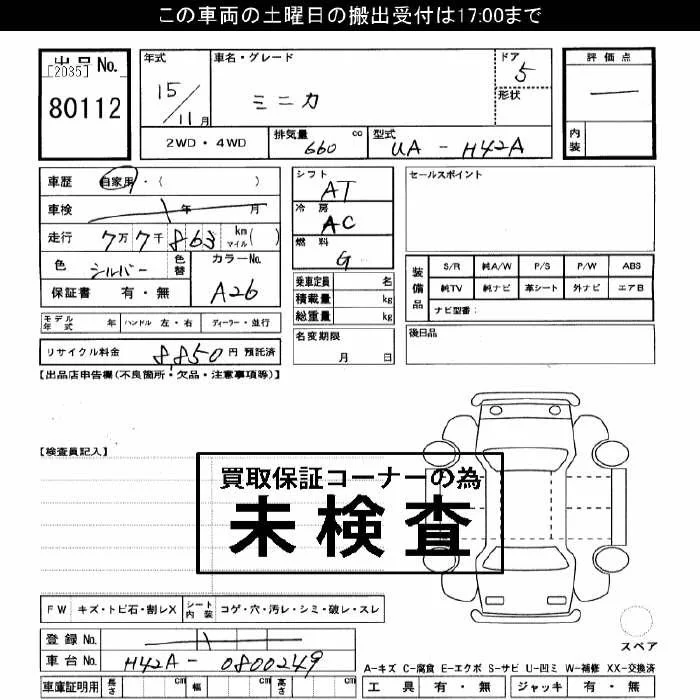 この車両の土曜日の搬出受付は17:00まで
出品 No. [2035]
80112
年式 15/11月
車名・グレード ミニカ
ドア 5
形状
評価点 —
内装
2WD・4WD
排気量 660 cc
型式 UA - H42A
車歴 自家用・( )
車検 年 月
走行 7万7千863 km マイル( )
色 シルバー 色替
カラーNo. A26
保証書 有・無
モデル年式 年 ハンドル 左・右 ディーラー・並行
リサイクル料金 8,850円 預託済
シフト AT
冷房 AC
燃料 G
乗車定員 名
積載量 kg
総重量 kg
名変期限 月 日
セールスポイント
装備品
S/R 純A/W P/S P/W ABS
純TV 純ナビ 革シート 外ナビ エアB
ナビ型番:
後日品
【出品店申告欄(不良箇所・欠品・注意事項等)】
【検査員記入】
買取保証コーナーの為
未検査
FW キズ・トビ石・割レX シート内装 コゲ・穴・汚レ・シミ・破レ・スレ
登録 No.
車台 No. H42A - 0800249
車庫証明用 長さ cm 幅 cm 高さ cm
スペア
A-キズ C-腐食 E-エクボ S-サビ U-凹ミ W-補修 XX-交換済
工具 有・無 ジャッキ 有・無